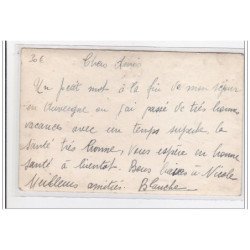 30€
Chers Amis
Un petit mot à la fin de mon séjour
en Auvergne ou j'ai passé de très bonnes
vacances avec un temps superbe la
santé très bonne, vous espère en bonne
santé à bientôt. Bons baisers à Nicole
Meilleures amitiés. Blanche